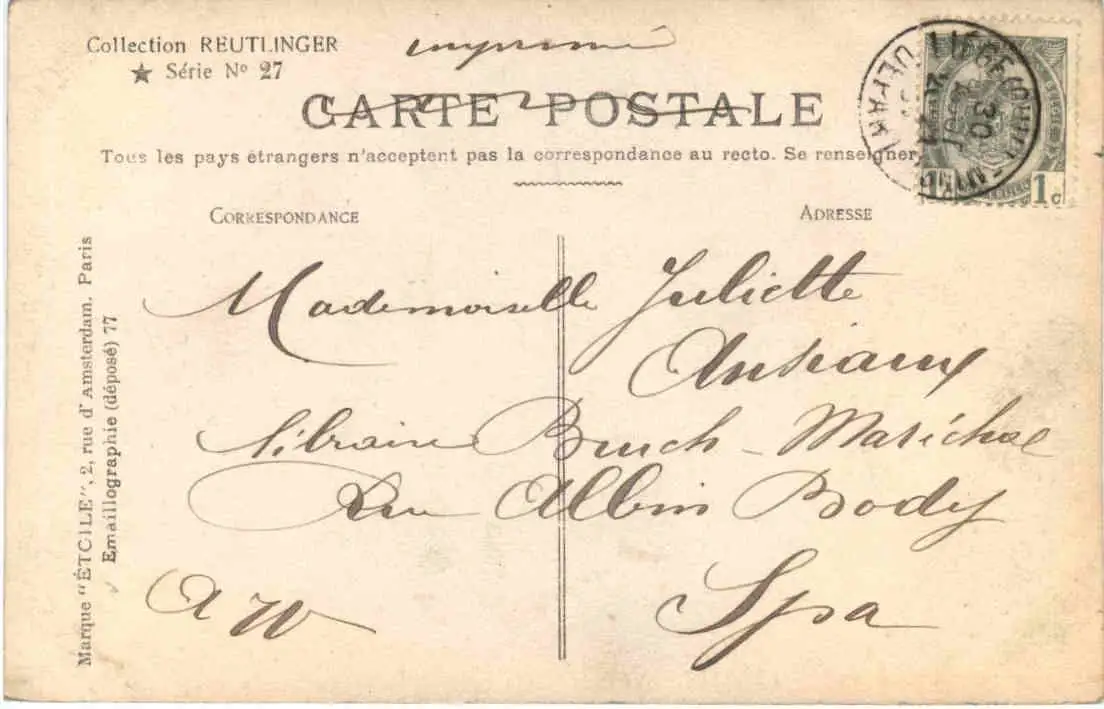 Collection REUTLINGER
★ Série Nº 27
imprimé
CARTE POSTALE
Tous les pays étrangers n'acceptent pas la correspondance au recto. Se renseigner
CORRESPONDANCE
ADRESSE
Mademoiselle Juliette
Ansiaux
libraire Bruch-Maréchal
Rue Albin Body
Spa
A W
Marque "ÉTOILE", 2, rue d'Amsterdam. Paris
Emaillographie (déposé) 77
LIÈGE
DÉPART
30
1c